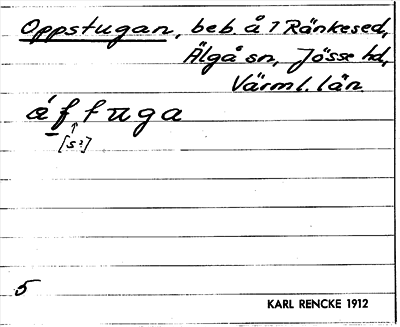 Oppstugan, beb. å 7 Ränkesed,
Älgå sn, Jösse hd,
Värml. län
[s?]
5
KARL RENCKE 1912